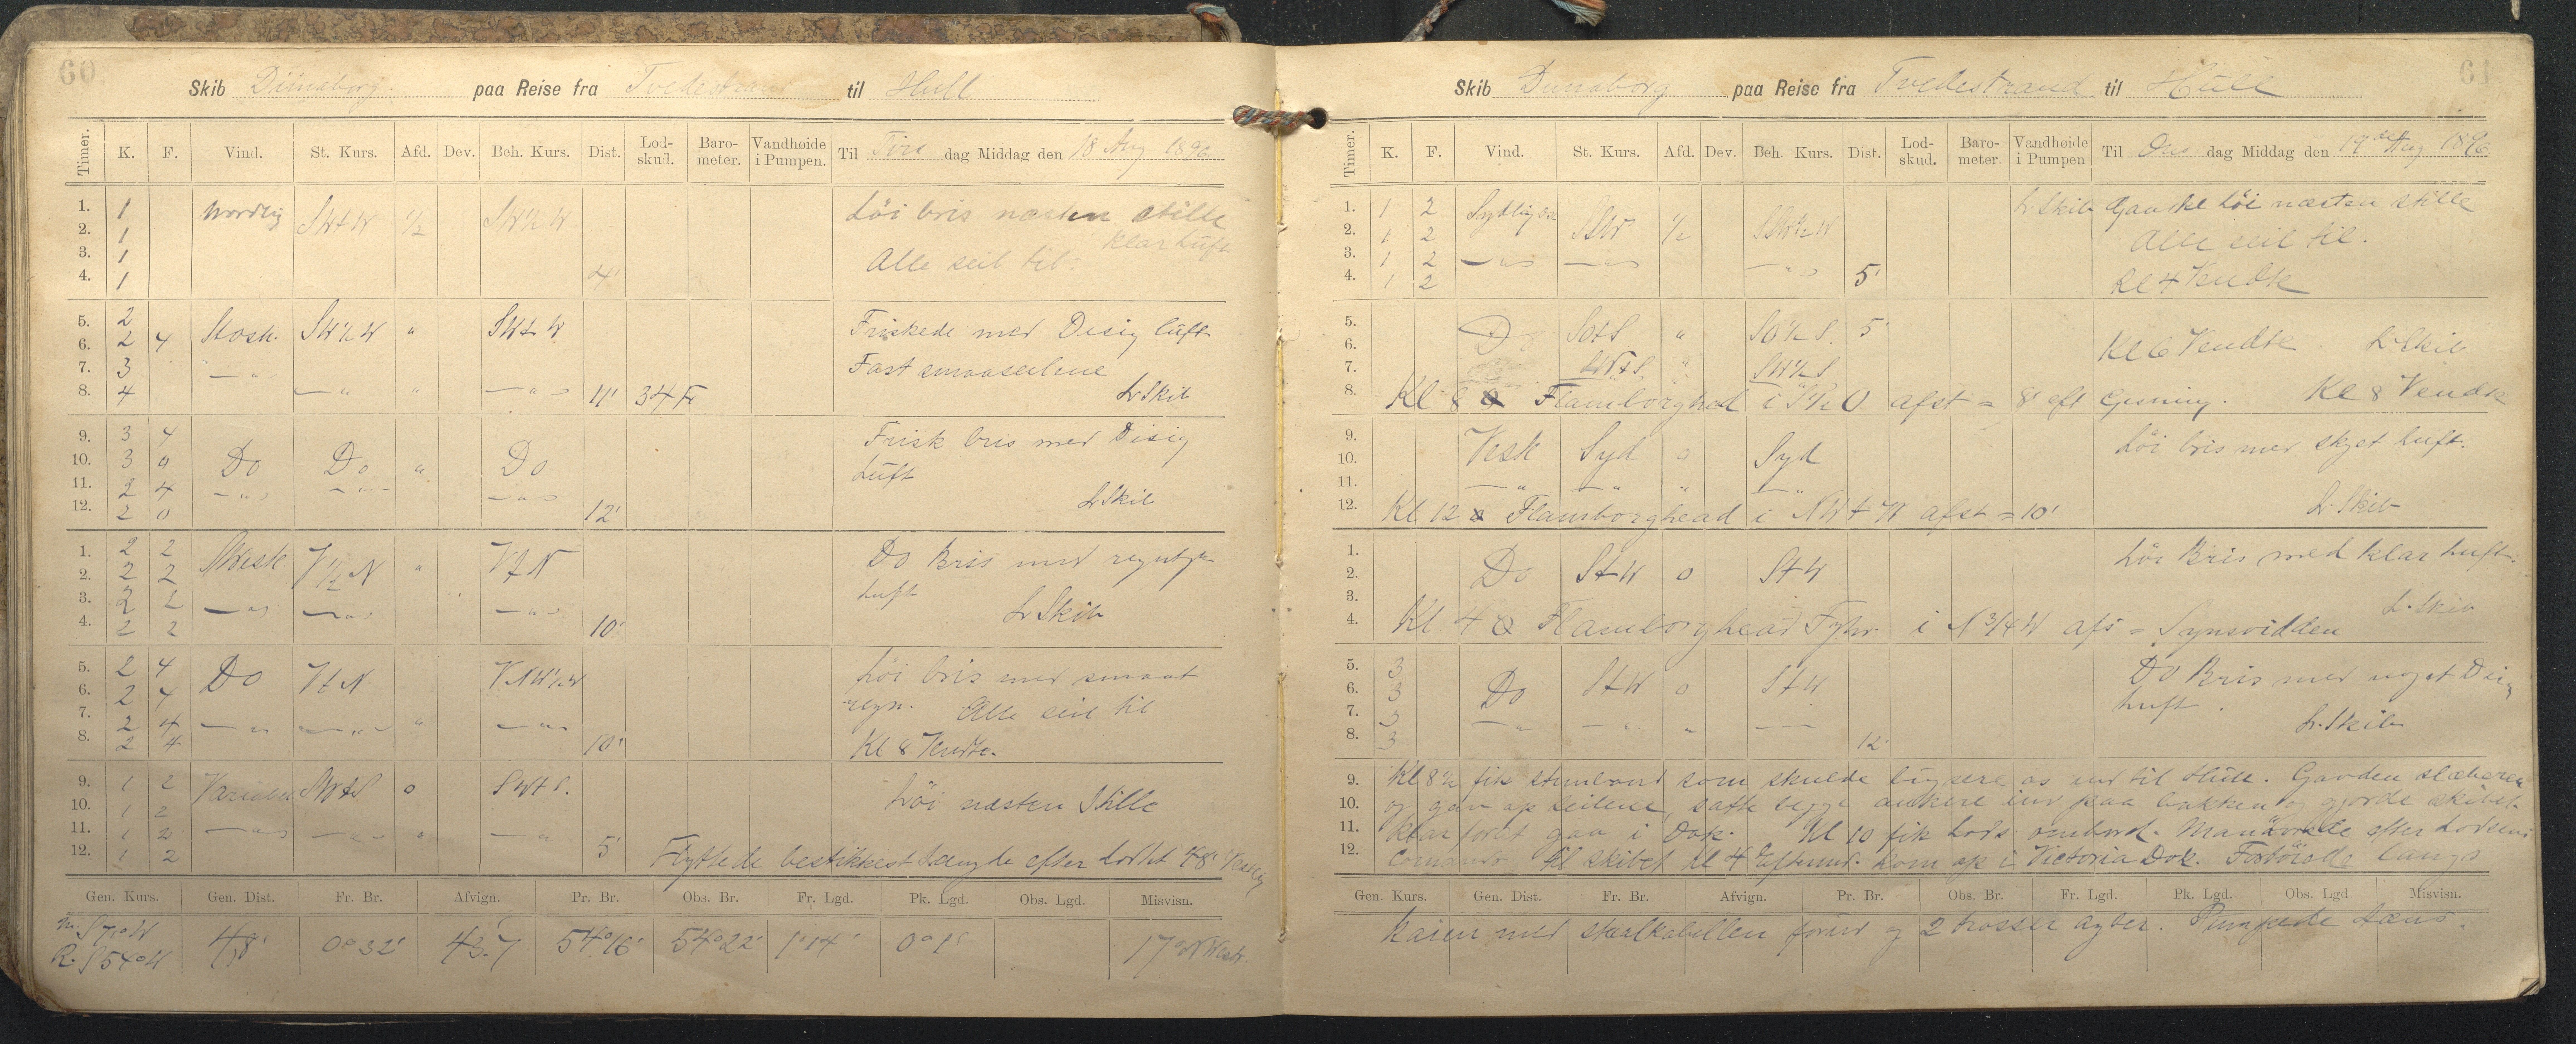 60
Skib Dünaborg. paa Reise fra Tvedestrand til Hull
Timer. K. F. Vind. St. Kurs. Afd. Dev. Beh. Kurs. Dist. Lod-skud. Baro-meter. Vandhøide i Pumpen. Til Tirs dag Middag den 18 Aug 1896
1. 1 Nordlig SWtW ½ SW½W Löi bris næsten stille
2. 1 klar luft
3. 1 Alle seil til.
4. 1 4'
5. 2 SW½W " SWtW Friskede med Disig luft
6. 2 4
7. 3 Fast smaaseilene
8. 4 " 11' 34 Fv L. Skib
9. 3 4 Frisk bris med Disig
10. 3 0 Do Do " Do Luft
11. 2 4
12. 2 0 12' L. Skib
1. 2 2 V½N " VtN Do Bris med
2. 2 2 luft
3. 2 2 L. Skib
4. 2 2 10'
5. 2 4 Do VtN VNW½W Löi bris med smaat
6. 2 4 regn. Alle seil til
7. 2 4 "
8. 2 4 10' Kl 8 Vendte.
9. 1 2 Variabel SWtS 0 SWtS. Löi næsten Stille
10. 1 2
11. 1 2
12. 1 2 5' Flyttede bestikkest Længde efter Loddet 48'
Gen. Kurs. Gen. Dist. Fr. Br. Afvign. Pr. Br. Obs. Br. Fr. Lgd. Pk. Lgd. Obs. Lgd. Misvisn.
m. S71°W
R. S54°W 48' 0°32' 43.7 54°16' 54°22' 1°14' 0°1' 17°
61
Skib Dunaborg paa Reise fra Tvedestrand til Hull
Timer. K. F. Vind. St. Kurs. Afd. Dev. Beh. Kurs. Dist. Lod-skud. Baro-meter. Vandhøide i Pumpen Til Ons dag Middag den 19de Aug 1896
1. 1 2 Sydlig SSW ½ SSW½W L. Skib Ganske Löi næsten stille
2. 1 2 Alle seil til.
3. 1 2
4. 1 2 5' Kl 4 Vendte
5. Do SOtS " SO½S. 5'
6. Kl 6 Vendte. L. Skib
7. SWtS " SW½S
8. Kl 8 Flamborghed i S½O afst = 8' eft Gisning. Kl 8 Vendte
9. Vesk Syd 0 Syd Löi bris med skyet luft.
10.
11.
12. Kl 12 Flamborghead i NWtW afst = 10' L. Skib
1. Löi Bris med klar luft.
2. Do StW 0 StW
3.
4. Kl 4 Flamborghead Fyhr. i N¾W afs = Synsvidden L. Skib
5. 3 Do Bris med noget Disig
6. 3 Do StW 0 StW
7. 3 luft.
8. 3 12' L. Skib
9. Kl 8½ fik som skulde bugsere os ind til Hull. Gavden slæberen
10. og gav op seilene, satte begge ankere ind paa bakken og gjorde skibet
11. klar forat gaa i Dok. Kl 10 fik Lods ombord. Manövrede efter Lodsens
12. Comando til skibet Kl 4 Efterm. kom op i Victoria Dok. Fortöiede langs
Gen. Kurs. Gen. Dist. Fr. Br. Afvign. Pr. Br. Obs. Br. Fr. Lgd. Pk. Lgd. Obs. Lgd. Misvisn.
kaien med staalkabellen forud og 2 trosser agter. Pumpede Læns.